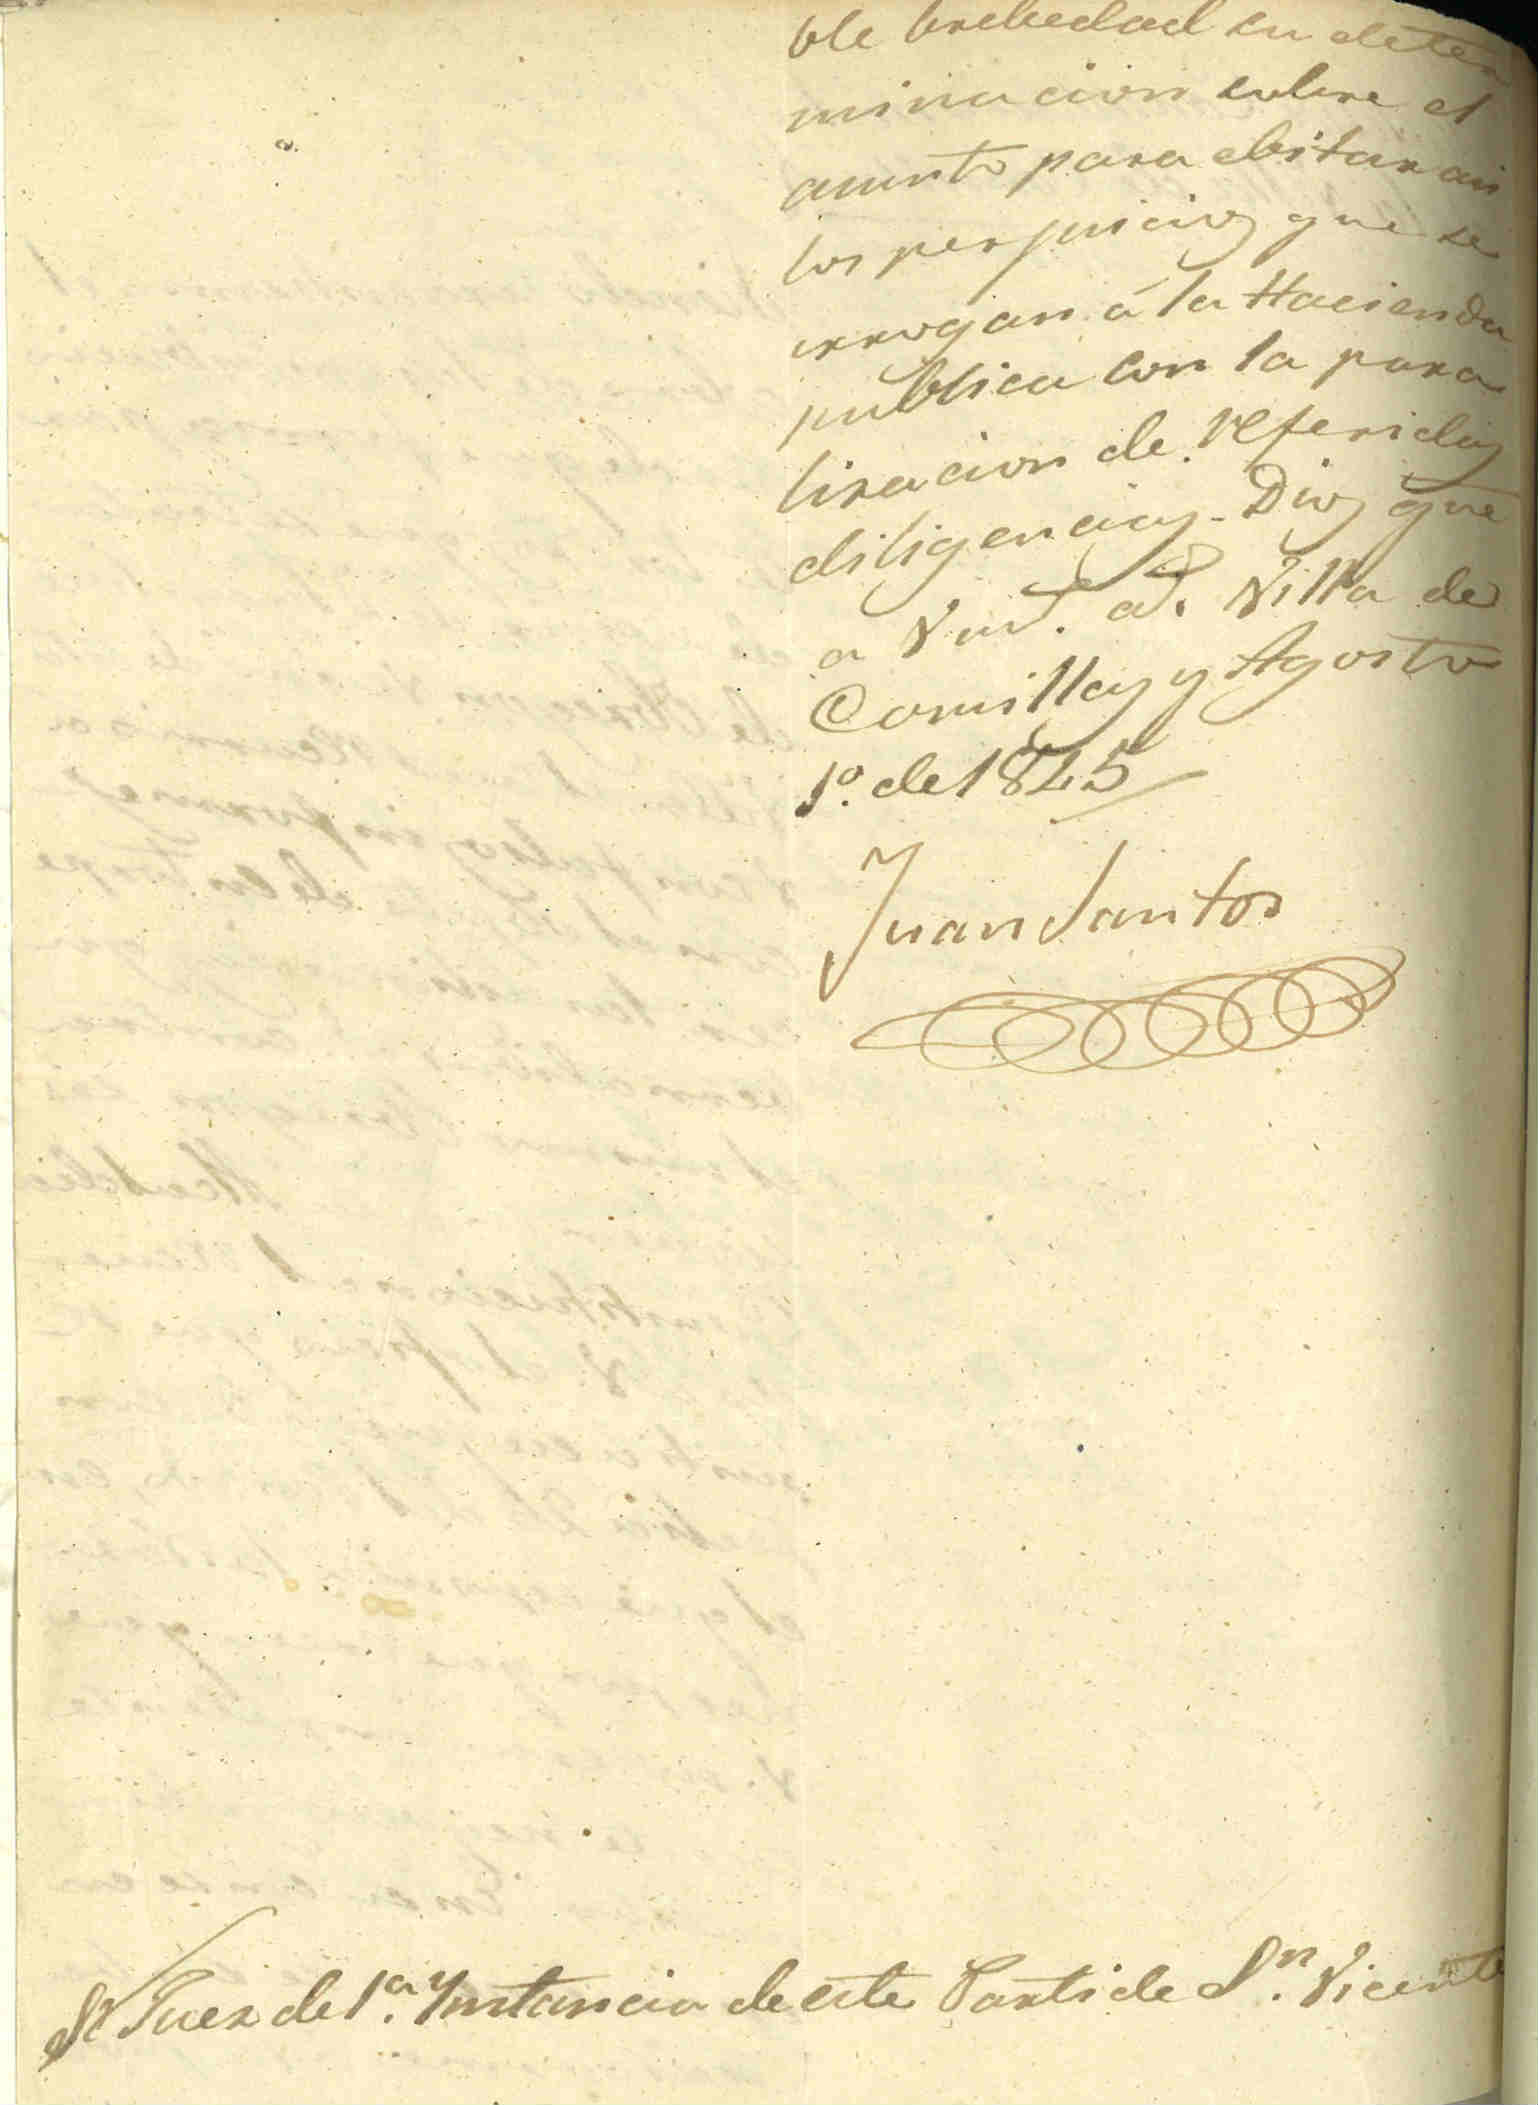 ble brebedad su deter
minacion sobre el
asunto para ebitar asi
los perjuicios que se
irrogan á la Hacienda
publica con la para
lizacion de referidas
diligencias. Dios gue
a Vmd. a.s Villa de
Comillas y Agosto
1º. de 1845
Juan Santos
Sr Juez de 1ª. Ynstancia de este Partido de Sn. Vicente